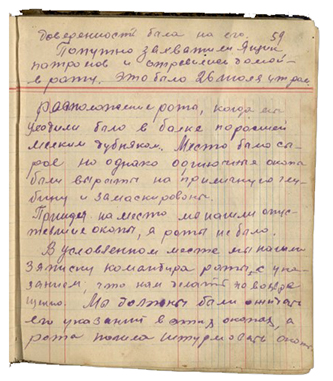 доверенность была на его. 59
Попутно захватили ящик
патронов и отправились домой -
в роту. Это было 26 июля утром
расположение рота, когда мы
уходили было в балке поросшей
мелким дубняком. Место было сы-
рое но однако одиночные окопы
были вырыты на приличную глу-
бину и замаскированы.
Пришед на место мы нашли опус-
тевшие окопы, а роты не было.
В условленном месте мы нашли
записку командира роты, с ука-
занием, что нам делать по возвра
щению. Мы должны были ожидать
его указаний в этих окопах, а
рота пошла штурмовать